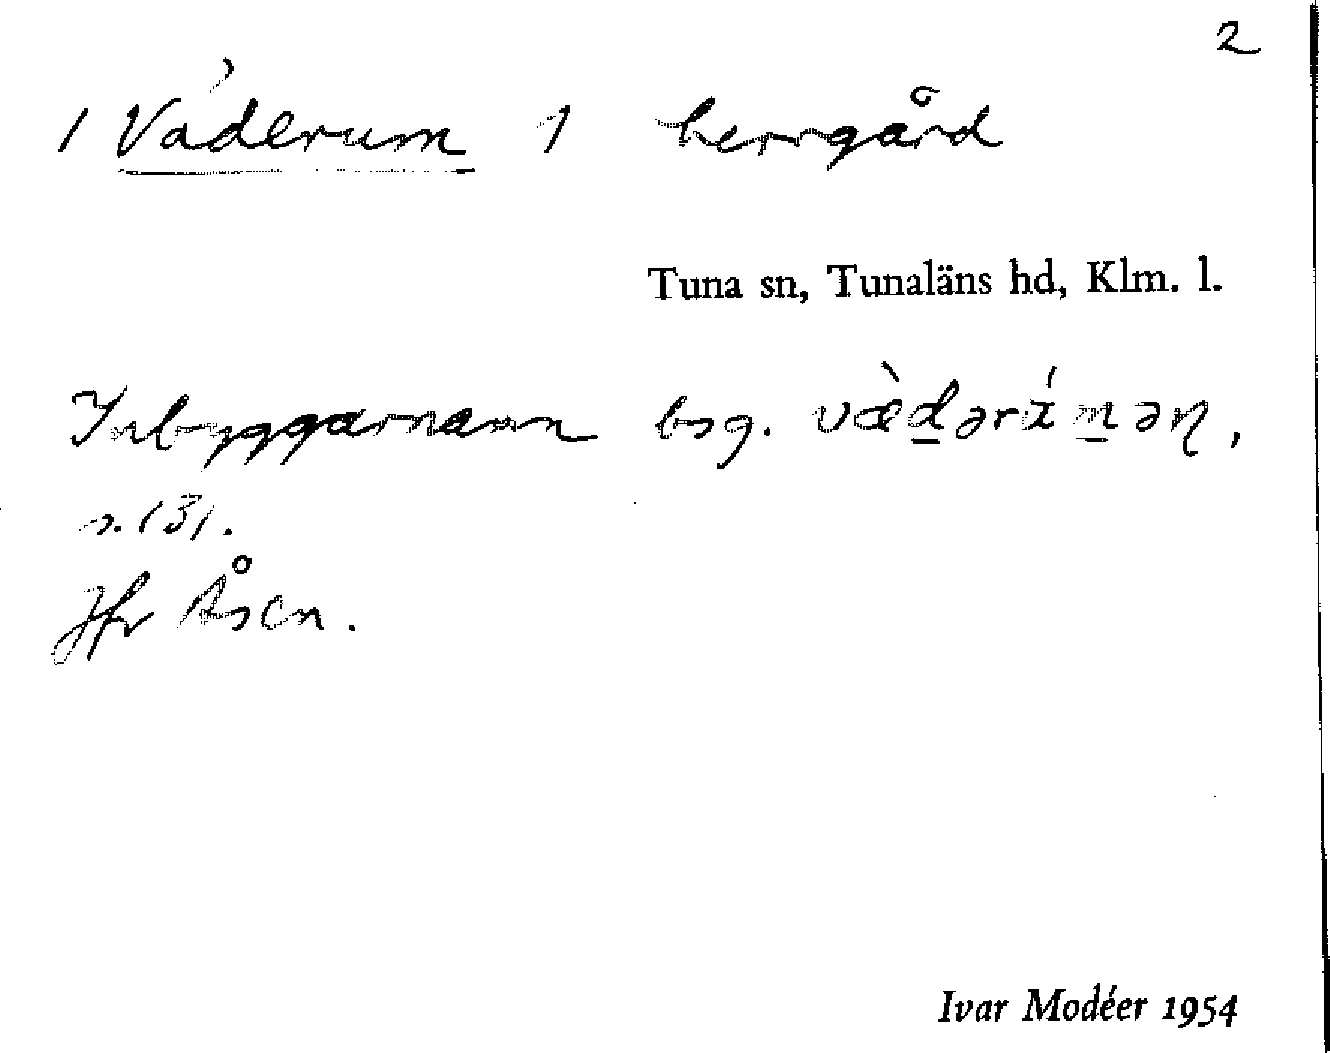 2
/ Väderum / herrgård
Tuna sn, Tunaläns hd, Klm. l.
Inbyggarnamn bsg. væ̀dərínən,
s. 131.
Jfr Åsen.
Ivar Modéer 1954